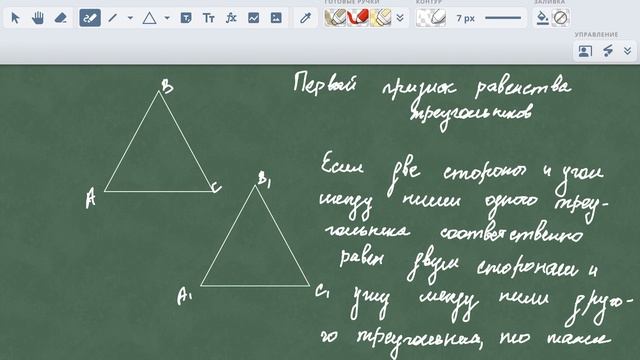 ГОТОВЫЕ РУЧКИ
КОНТУР
ЗАЛИВКА
7 px
УПРАВЛЕНИЕ
Первый признак равенства
треугольников
B
A
C
B₁
A₁
C₁
Если две стороны и угол
между ними одного треу-
гольника соответственно
равен двум сторонам и
углу между ними друго-
го треугольника, то такие